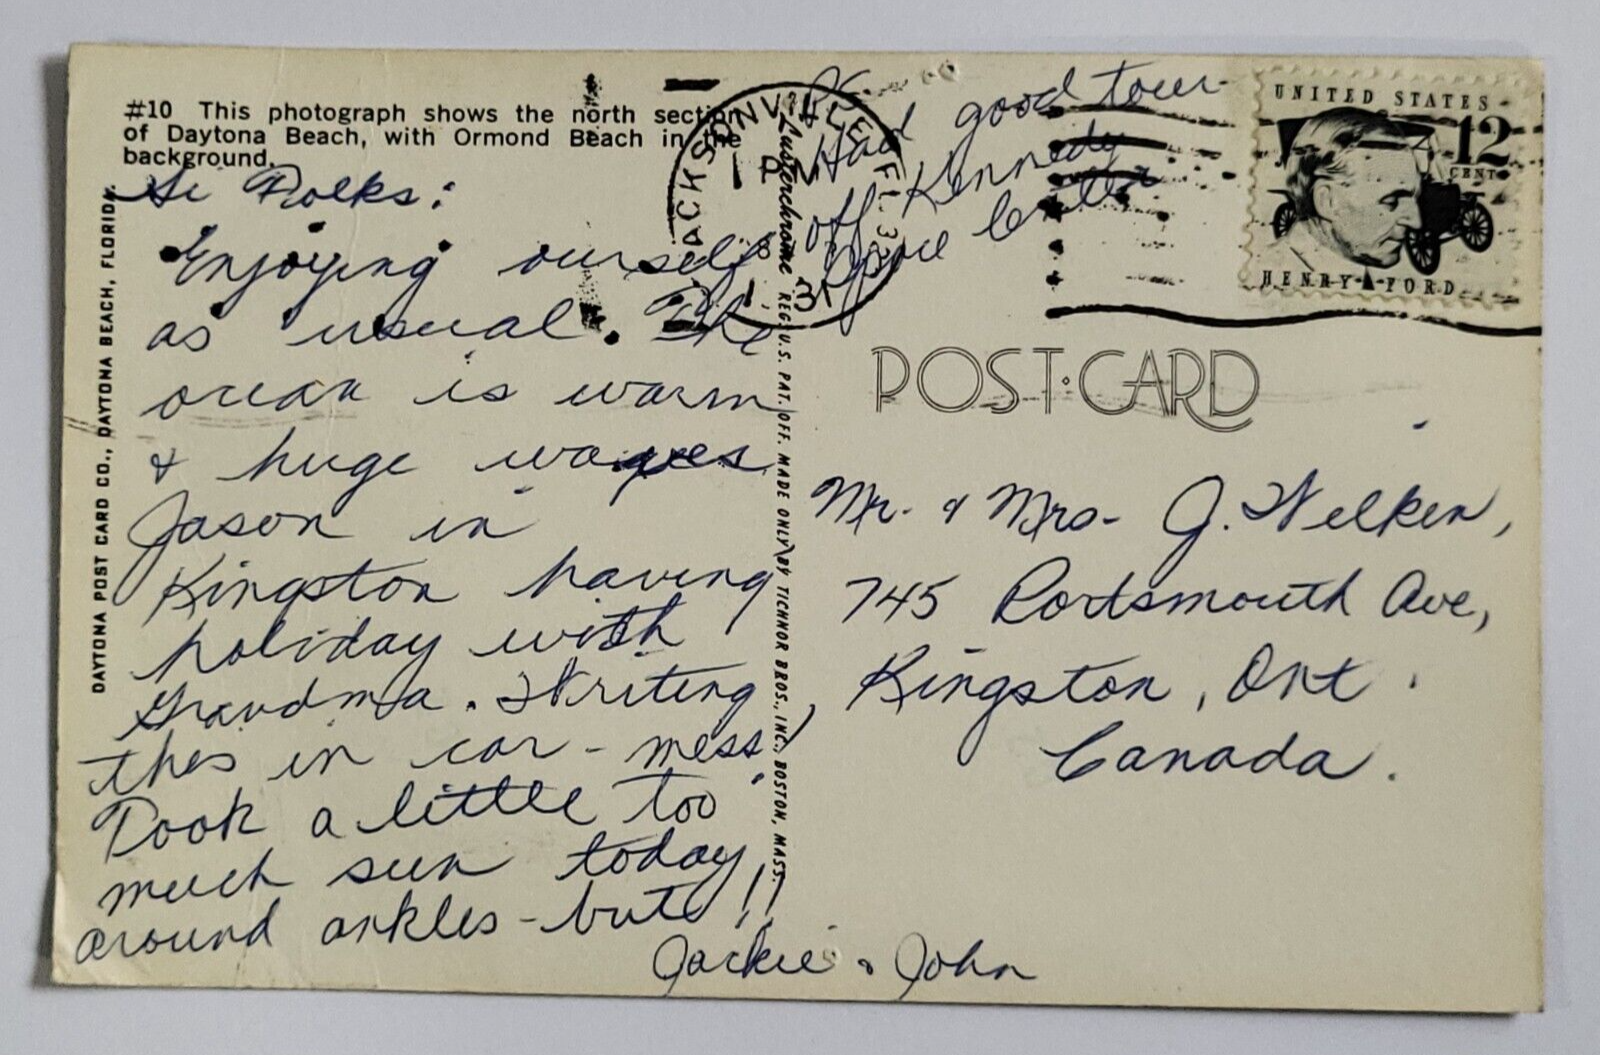 #10 This photograph shows the north section
of Daytona Beach, with Ormond Beach in the
background.
DAYTONA POST CARD CO., DAYTONA BEACH, FLORIDA.
Hi Folks:
Enjoying ourself
as usual. The
ocean is warm
& huge waves
Jason in
Kingston having
holiday with
Grandma. Writing
this in car - mess!
Took a little too
much sun today
around ankles - but!!
Jackie & John
Lusterchrome REG. U.S. PAT. OFF. MADE ONLY BY TICHNOR BROS., INC., BOSTON, MASS.
JACKSONVILLE FL 32
PM
31
Had good tour
off Kennedy
Space
UNITED STATES
12
CENTS
HENRY FORD
POST CARD
Mr. & Mrs. J. Wilken,
745 Portsmouth Ave,
Kingston, Ont.
Canada.